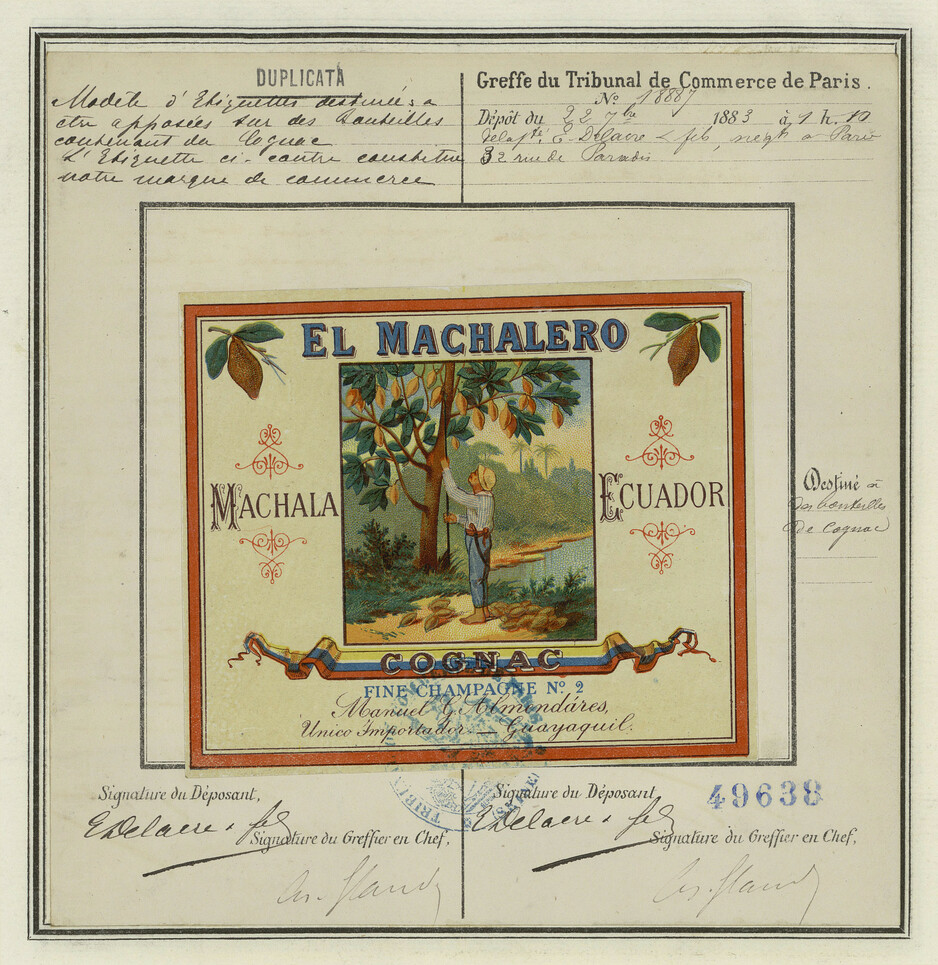 DUPLICATA
Modèle d'Etiquettes destinées a
etre apposées sur des Bouteilles
contenant du Cognac
L'Etiquette ci-contre constitue
notre marque de commerce
Greffe du Tribunal de Commerce de Paris.
No 18887
Dépôt du 22 7bre 1883 à 1 h. 10
E. Delacre & fils, negts a Paris
32 rue de Paradis
EL MACHALERO
MACHALA
ECUADOR
COGNAC
FINE CHAMPAGNE No. 2
Manuel G. Almendáres,
Unico Importador — Guayaquil.
Destiné a
des bouteilles
de Cognac
Signature du Déposant,
E Delacre & fils
Signature du Greffier en Chef,
Signature du Déposant,
E Delacre & fils
Signature du Greffier en Chef,
49638